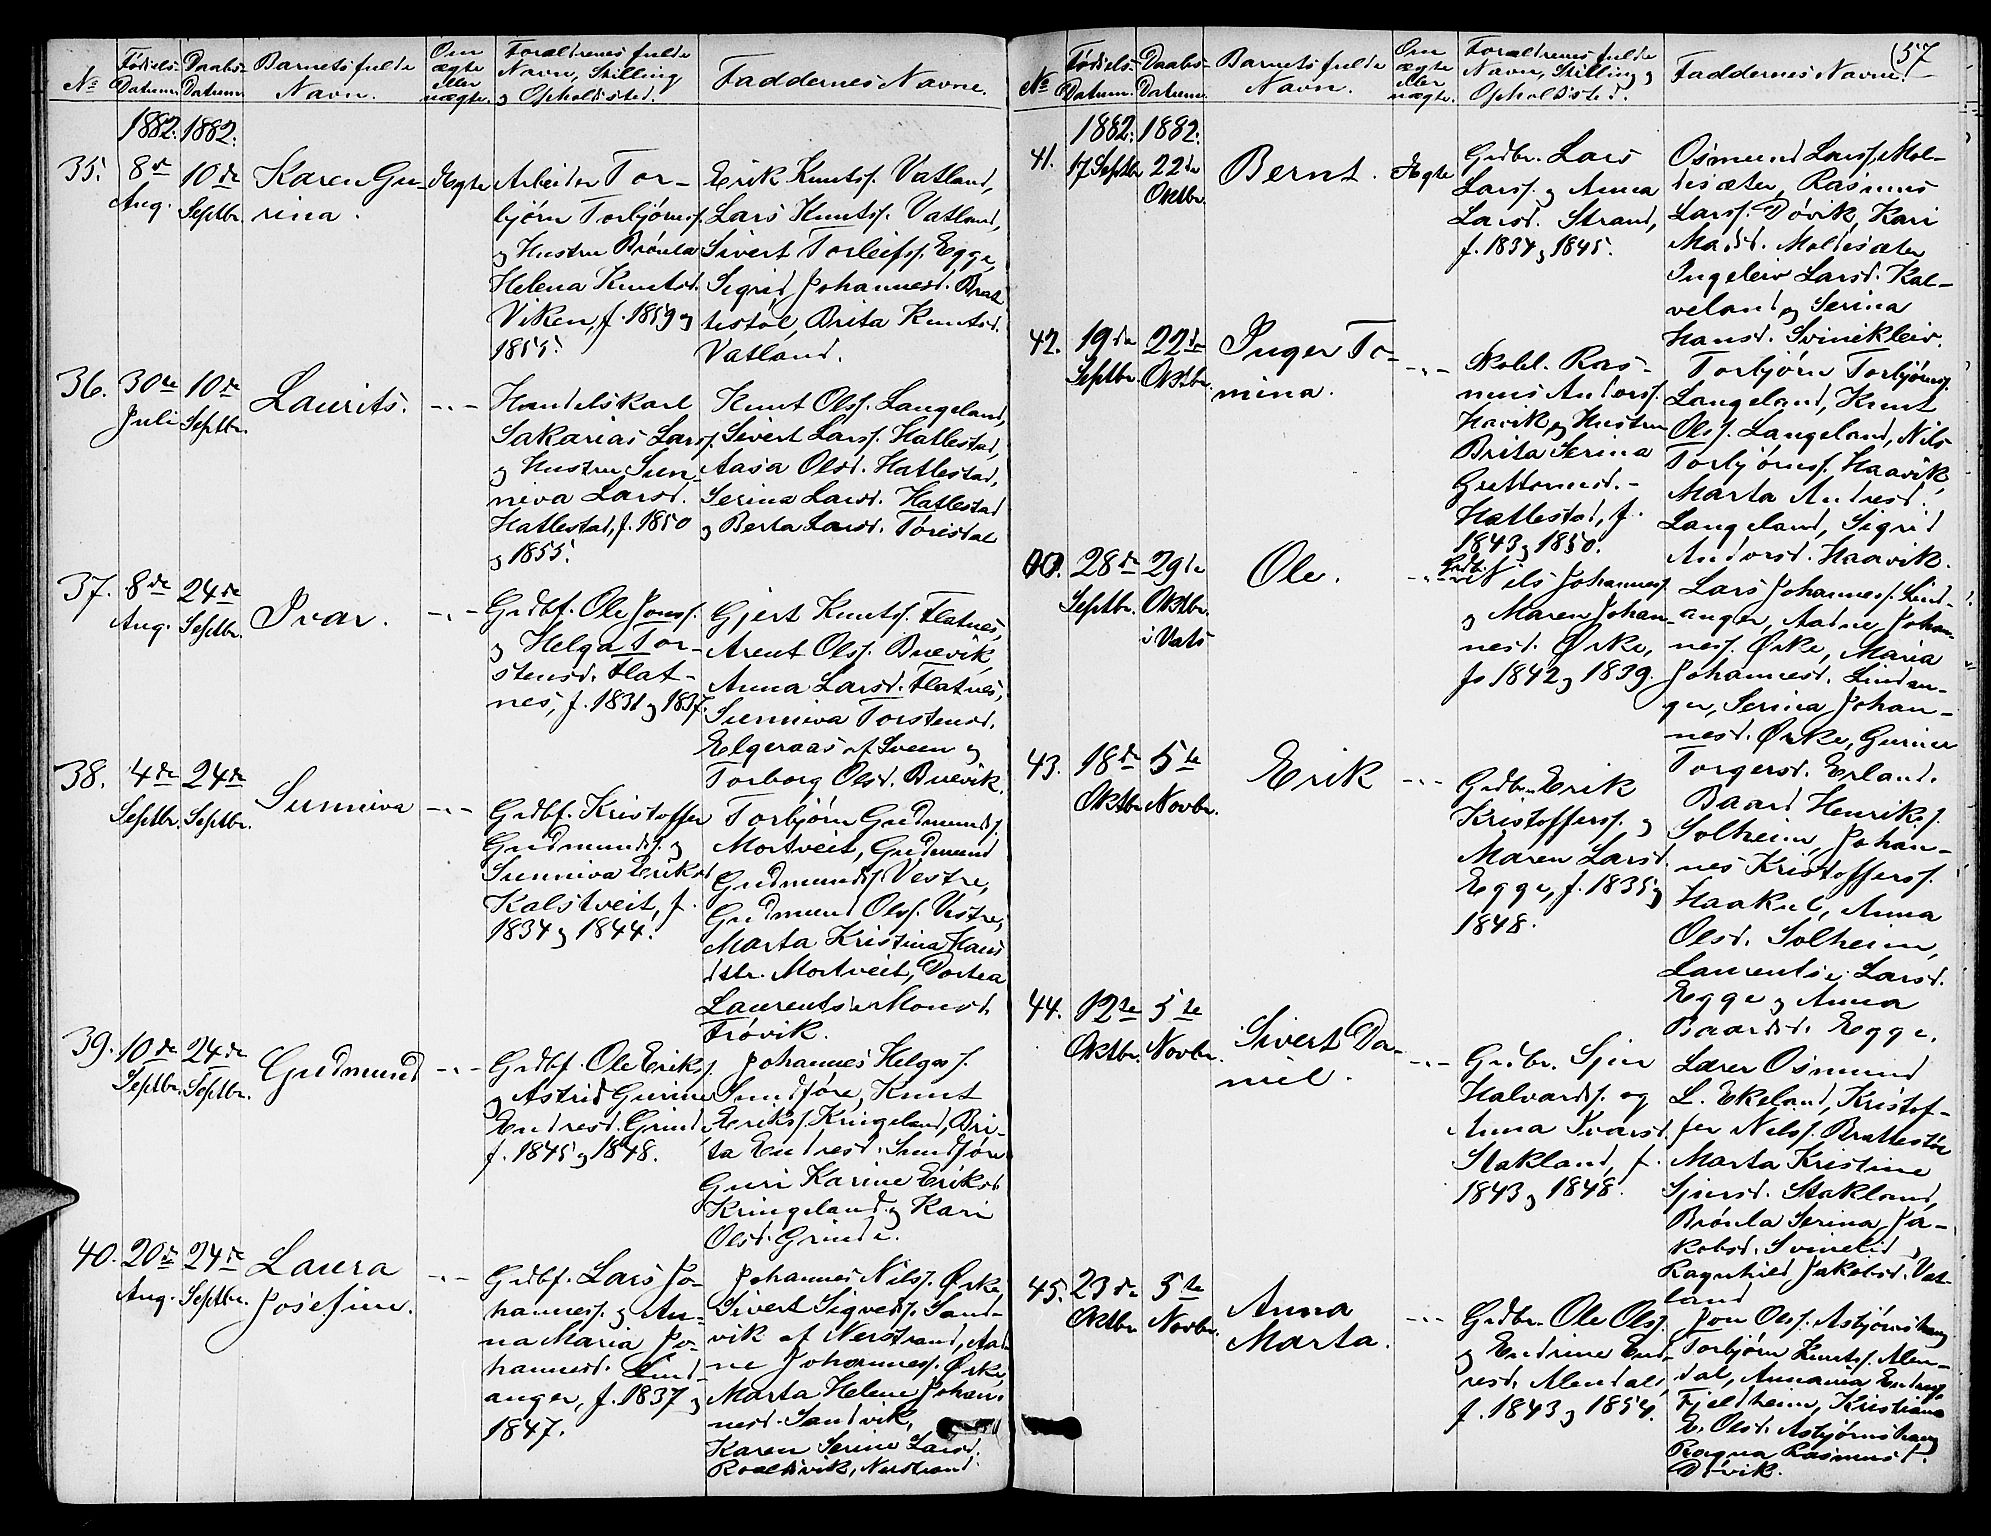 No
Fødsels-
Datum.
Daabs-
Datum.
Barnets fulde
Navn.
Om
ægte
eller
uægte.
Forældrenes fulde
Navn, Stilling
og Opholdssted.
Faddernes Navne.
1882. 1882.
35.
8de
Aug.
10de
Septbr.
Karen Gu-
rina.
Ægte
Arbeider Tor-
bjørn Torbjørnss.
og Hustru Brønla
Helena Knutsd.
Viken, f. 1859 og
1855.
Erik Knutss. Vatland,
Lars Knutss. Vatland,
Sivert Torleifss. Egge,
Sigrid Johannesd. Brat
testøl, Brita Knutsd.
Vatland.
36.
30te
Juli
10de
Septbr.
Laurits.
-"-
Handelskarl
Sakarias Larss.
og Hustru Sun-
niva Larsd.
Hatlestad, f. 1850
og 1855.
Knut Olss. Langeland,
Sivert Larss. Hatlestad,
Aasa Olsd. Hatlestad,
Serina Larsd. Hatlestad
og Berta Larsd. Torestad
37.
8de
Aug.
24de
Septbr.
Ivar.
-"-
Grdbf. Ole Jonss.
og Helga Tor-
stensd. Flat-
nes, f. 1831 og 1837.
Gjert Knutss. Flatnes,
Arent Olss. Buevik,
Anna Larsd. Flatnes,
Sunniva Torstensd.
Elgeraas af Sveen og
Torborg Olsd. Buevik.
38.
4de
Septbr.
24de
Septbr.
Sunniva
-"-
Grdbf. Kristoffer
Gudmundss. og
Sunniva Eriksd
Kalstveit, f.
1834 og 1844.
Torbjørn Gudmundss.
Mortveit, Gudmund
Gudmundss. Vestre,
Gudmund Olss. Vestre,
Marta Kristina Hans
dtr. Mortveit, Dortea
Laurentse Monsd.
Frøvik.
39.
10de
Septbr.
24de
Septbr.
Gudmund
-"-
Grdbf. Ole Erikss.
og Astrid Gurine
Endresd. Grinde,
f. 1845 og 1848.
Johannes Helges s.
Sundføre, Knut
Erikss. Kringeland, Bri-
ta Endresd. Sundføre
Guri Karine Eriksd.
Kringeland og Kari
Olsd. Grinde.
40.
20de
Aug.
24de
Septbr.
Laura
Josefine.
-"-
Grdbf. Lars Jo-
hanness. og An-
na Maria Jo-
hannesd. Lind-
anger, f. 1837 og
1847.
Johannes Nilss. Ørke,
Sivert Sigveds. Sand-
vik af Nerstrand, Aad-
ne Johanness. Ørke,
Marta Helene Johan-
nesd. Sandvik,
Karen Serine Larsd.
Roaldsvik, Nerstrand.
57
No
Fødsels-
Datum.
Daabs-
Datum.
Barnets fulde
Navn.
Om
ægte
eller
uægte.
Forældrenes fulde
Navn, Stilling og
Opholdssted.
Faddernes Navne
1882. 1882.
41.
17 Septbr.
22de
Oktbr.
Bernt.
Ægte
Grdbr. Lars
Larss. og Anna
Larsd. Strand,
f. 1834 og 1845.
Osmund Larss. Mol-
desæter, Rasmus
Larss. Døvik, Kari
Madsd. Moldesæter
Ingeleiv Larsd. Kal-
veland og Serina
Hansd. Svinekleiv.
42.
19de
Septbr.
22de
Oktbr.
Inger To-
mina.
-"-
Skohl. Ras-
mus Andorss.
Havik og Hustru
Brita Serina
Guttormsd.
Hatlestad, f.
1843 og 1850.
Torbjørn Torbjørnss.
Langeland, Knut
Olss. Langeland, Nils
Torbjørnss. Haavik,
Marta Andresd.
Langeland, Sigrid
Andorsd. Haavik.
00.
28de
Septbr.
29de
Oktbr.
i Vats
Ole.
-"-
Grdbr. Nils Johanness.
og Maren Johan-
nesd. Ørke,
fs 1842 og 1839.
Lars Johanness. Lind-
anger, Aadne Johan-
ness. Ørke, Maria
Johannesd. Lindan-
ger, Serina Johan-
nesd. Ørke, Guriner
Torgersd. Erland.
43.
18de
Oktbr.
5te
Novbr.
Erik
-"-
Grdbr. Erik
Kristofferss. og
Maren Larsd.
Egge, f. 1835 og
1848.
Baard Henrikss.
Solheim, Johan-
nes Kristofferss.
Haakul, Anna
Olsd. Solheim,
Laurentse Larsd.
Egge og Anna
Baardsd. Egge.
44.
12te
Oktbr.
5te
Novbr.
Sivert Da-
niel.
-"-
Grdbr. Sjur
Halvardss. og
Anna Ivarsd.
Stakland, f.
1843 og 1848.
Lærer Osmund
L. Ekeland, Kristof-
fer Nilss. Brattestøl
Marta Kristine
Sjursd. Stakland,
Brønla Serina Ja-
kobsd. Svinelid,
Ragnhild Jakobsd. Vat-
land
45.
23de
Oktbr.
5te
Novbr.
Anna
Marta.
-"-
Grdbr. Ole Olss.
og Endrine End-
resd. Alendal,
f. 1843 og 1854.
Jon Olss. Asbjørnshaug
Torbjørn Knutss. Alen-
dal, Annania Endresd.
Fjeldheim, Kristiane
E. Olsd. Asbjørnshaug
Ragna Rasmusd.
Døvik.